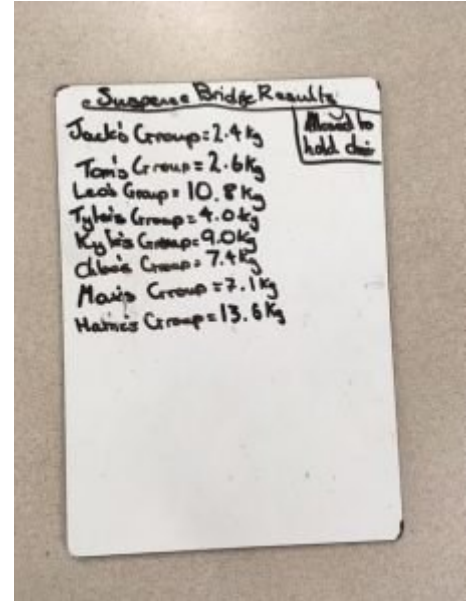 Suspense Bridge Results
Allowed to
hold
Jack's Group = 2.4kg
Tom's Group = 2.6kg
Leo's Group = 10.8kg
Tyler's Group = 4.0kg
Kyle's Group = 9.0kg
Chloe's Group = 7.4kg
Group = 7.1kg
Group = 13.6kg